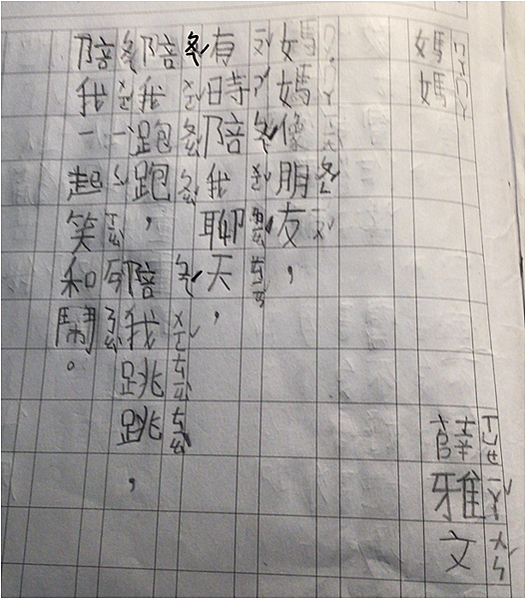 媽媽
薛雅文
媽媽像朋友，
有時陪我聊天，
陪我跑跑，陪我跳跳，
陪我一起笑和鬧。